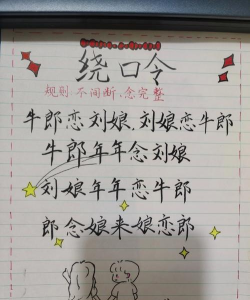 绕口令
规则:不间断,念完整
牛郎恋刘娘,刘娘恋牛郎
牛郎年年念刘娘
刘娘年年恋牛郎
郎念娘来娘恋郎